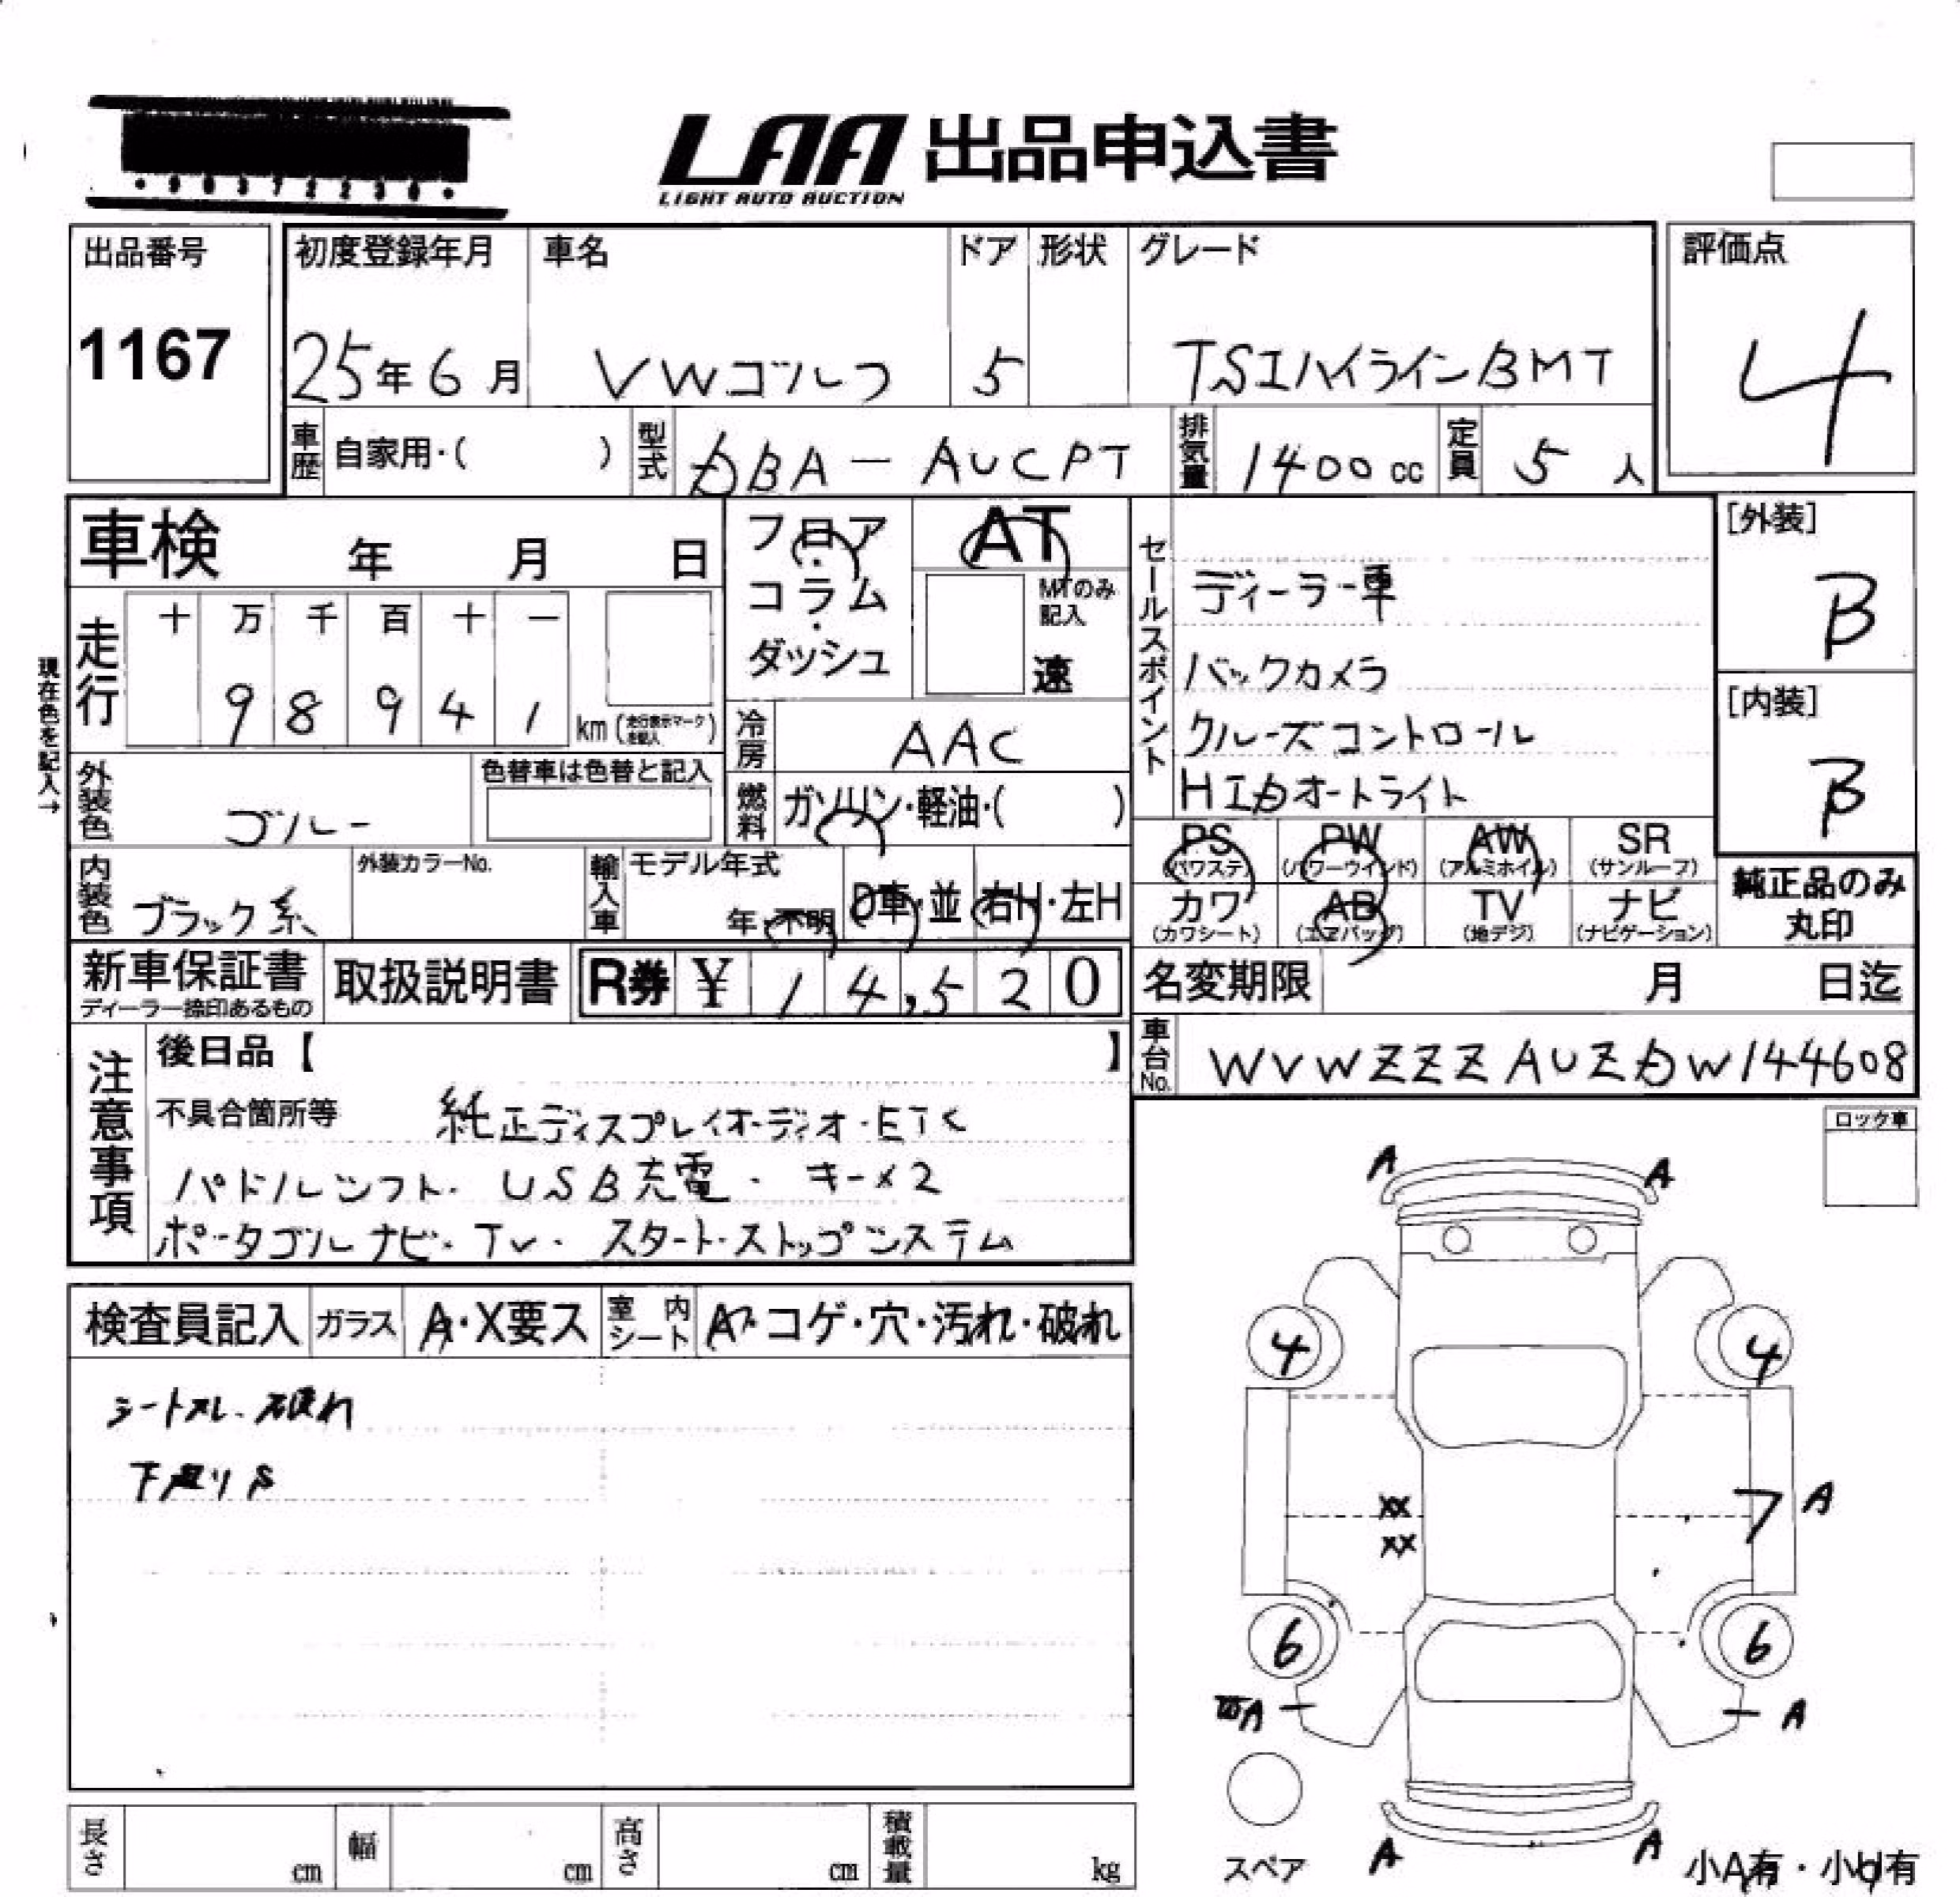 LAA 出品申込書
LIGHT AUTO AUCTION
出品番号
1167
初度登録年月
25年6月
車名
VWゴルフ
ドア
5
形状
グレード
TSIハイラインBMT
評価点
4
車歴 自家用・( )
型式 DBA-AUCPT
排気量 1400cc
定員 5人
車検 年 月 日
フロア・コラム・ダッシュ
AT
MTのみ記入
速
セールスポイント
ディーラー車
バックカメラ
クルーズコントロール
HIDオートライト
[外装]
B
[内装]
B
現在色を記入→
走行 十 万 千 百 十 一
98941 km (走行表示マークを記入)
冷房 AAC
外装色 ブルー
色替車は色替と記入
燃料 ガソリン・軽油・( )
PS (パワステ) PW (パワーウインド) AW (アルミホイル) SR (サンルーフ)
カワ (カワシート) AB (エアバッグ) TV (地デジ) ナビ (ナビゲーション)
純正品のみ丸印
内装色 ブラック系
外装カラーNo.
輸入車 モデル年式
年・不明 D車・並 右H・左H
新車保証書
ディーラー捺印あるもの
取扱説明書
R券 ¥ 14,520
名変期限 月 日迄
車台No. WVWZZZAUZDW144608
注意事項
後日品【 】
不具合箇所等 純正ディスプレイオーディオ・ETC
パドルシフト・USB充電・キー×2
ポータブルナビ・TV・スタートストップシステム
検査員記入 ガラス A・X要ス 室内シート コゲ・穴・汚れ・破れ
シートスレ・破れ
下廻りS
ロック車
A A
4 4
XX
XX
7 A
6 6
A A
スペア
A A
小A有・小U有
長さ cm 幅 cm 高さ cm 積載量 kg